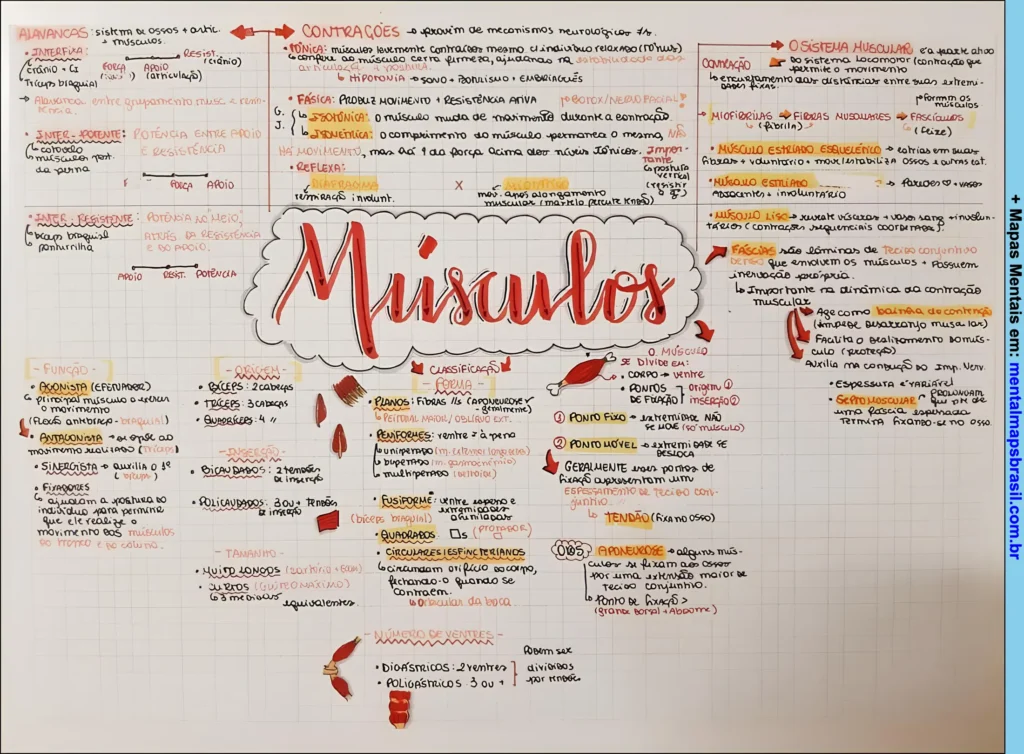 ALAVANCAS: sistema de ossos + artic. + músculos.
• INTERFIXA:
(crânio + C1
Tríceps braquial
FORÇA
APOIO
(articulação)
RESIST.
(crânio)
→ Alavanca entre grupamento musc e resistência.
• INTER-POTENTE: POTÊNCIA ENTRE APOIO
E RESISTÊNCIA
músculos post.
da perna
FORÇA APOIO
• INTER-RESISTENTE: POTÊNCIA NO MEIO,
ATRÁS DA RESISTÊNCIA
E DO APOIO.
bíceps braquial
panturrilha
APOIO RESIST. POTÊNCIA
CONTRAÇÕES → provém de mecanismos neurológicos
• TÔNICA: músculos levemente contraídos mesmo c/ indivíduo relaxado (tônus)
confere ao músculo certa firmeza, ajudando na estabilidade das
articulações + postura.
↳ HIPOTONIA → SONO + BOTULISMO + EMBRIAGUÊS
• FÁSICA: PRODUZ MOVIMENTO + RESISTÊNCIA ATIVA
BOTOX/NERVO FACIAL
ISOTÔNICA: o músculo muda de movimento durante a contração.
ISOMÉTRICA: o comprimento do músculo permanece o mesmo, NÃO
HÁ MOVIMENTO, mas há ↑ da força acima dos níveis tônicos.
Importante
a postura
vertical
(resistir
a g)
• REFLEXA:
DIAFRAGMA X MIOTÁTICO
respiração involunt.
mov. após alongamento
músculos (martelo percute tendão)
O SISTEMA MUSCULAR é a parte ativa
do sistema locomotor (contração que
permite o movimento
CONTRAÇÃO
↳ encurtamento das distâncias entre suas extremidades fixas.
Formam os
músculos
MIOFIBRILAS → FIBRAS MUSCULARES → FASCÍCULOS
↳ (fibrila)
↳ (feixe)
• MÚSCULO ESTRIADO ESQUELÉTICO → estrias em suas
fibras + voluntário + mov/estabiliza ossos e outras est.
• MÚSCULO ESTRIADO → Paredes ♡ + vasos
adjacentes + involuntário
• MÚSCULO LISO → reveste vísceras + vaso sang + involuntários (contrações sequenciais coordenadas).
FÁSCIAS são lâminas de Tecido conjuntivo
DENSO que envolvem os músculos + possuem
inervação própria.
↳ Importante na dinâmica da contração
muscular
Age como bainha de contenção
(impede desarranjo muscular)
Facilita o deslizamento do músculo (proteção)
Auxilia na condução do Imp. Nerv.
• Espessura é variável
• SEPTO MUSCULAR → PROLONGAM.
que parte de
uma fáscia espessada
Termina fixando-se no osso.
Músculos
- FUNÇÃO -
• AGONISTA (EFETUADOR)
principal músculo a exercer
o movimento
(flexão antebraço → braquial)
• ANTAGONISTA → se opõe ao
movimento realizado (Tríceps)
• SINERGISTA → auxilia o 1º
↳ (bíceps)
• FIXADORES
↳ ajustam a postura do
indivíduo para permitir
que ele realize o
movimento dos músculos
do tronco e da coluna.
- ORIGEM -
• BÍCEPS: 2 cabeças
• TRÍCEPS: 3 CABEÇAS
• QUADRÍCEPS: 4 //
- INSERÇÃO -
• BICAUDADOS: 2 tendões
de inserção
• POLICAUDADOS: 3 OU + TENDÕES
DE INSERÇÃO
- TAMANHO -
• MUITO LONGOS (sartório + 60cm)
• CURTOS (GLÚTEO MÁXIMO)
↳ 3 medidas
equivalentes.
CLASSIFICAÇÃO
- FORMA -
• PLANOS: FIBRAS //s (APONEUROSE
geralmente)
↳ PEITORAL MAIOR / OBLÍQUO EXT.
• PENIFORMES: ventre à pena
unipenado (m. extensor longo dedos)
bipenado (m. gastrocnêmio)
multipenado (deltoide)
• FUSIFORME: ventre espesso e
extremidades
afuniladas
(bíceps braquial)
• QUADRADOS □s (PRONADOR)
• CIRCULARES/ESFINCTERIANOS
↳ circundam orifício do corpo,
fechando-o quando se
contraem.
↳ orbicular da boca
- NÚMERO DE VENTRES -
• DIGÁSTRICOS: 2 ventres
• POLIGÁSTRICOS 3 OU +
Podem ser
divididos
por tendões
O MÚSCULO
SE DIVIDE EM:
• CORPO → ventre
• PONTOS
DE FIXAÇÃO
origem ①
inserção ②
① PONTO FIXO → extremidade NÃO
SE MOVE (só músculo)
② PONTO MÓVEL → extremidade SE
DESLOCA
GERALMENTE esses pontos de
fixação apresentam um
ESPESSAMENTO DE TECIDO CONJUNTIVO
↳ TENDÃO (fixa no osso)
OBS: APONEUROSE → alguns músculos se fixam aos ossos
por uma extensão maior de
tecido conjuntivo.
↳ PONTO DE FIXAÇÃO >
(grande dorsal + Abdome)
+ Mapas Mentais em: mentalmapsbrasil.com.br